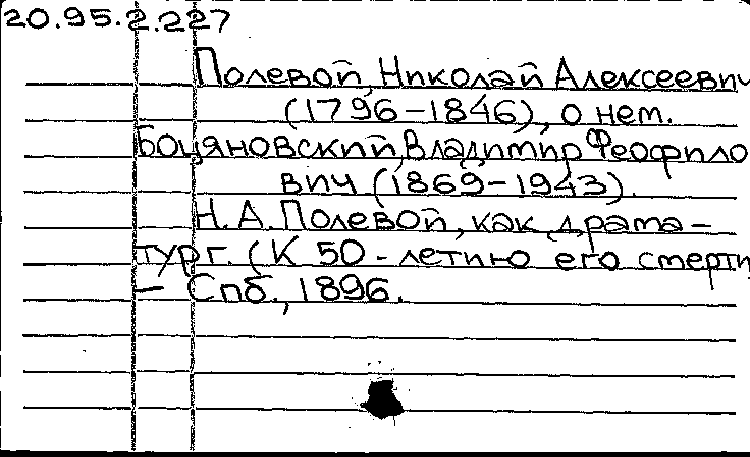 20.95.2.227
Полевой, Николай Алексеевич
(1796-1846), о нем.
Боцяновский, Владимир Феофило
вич (1869-1943).
Н. А. Полевой, как драма-
тург. (К 50-летию его смерти
- Спб., 1896.